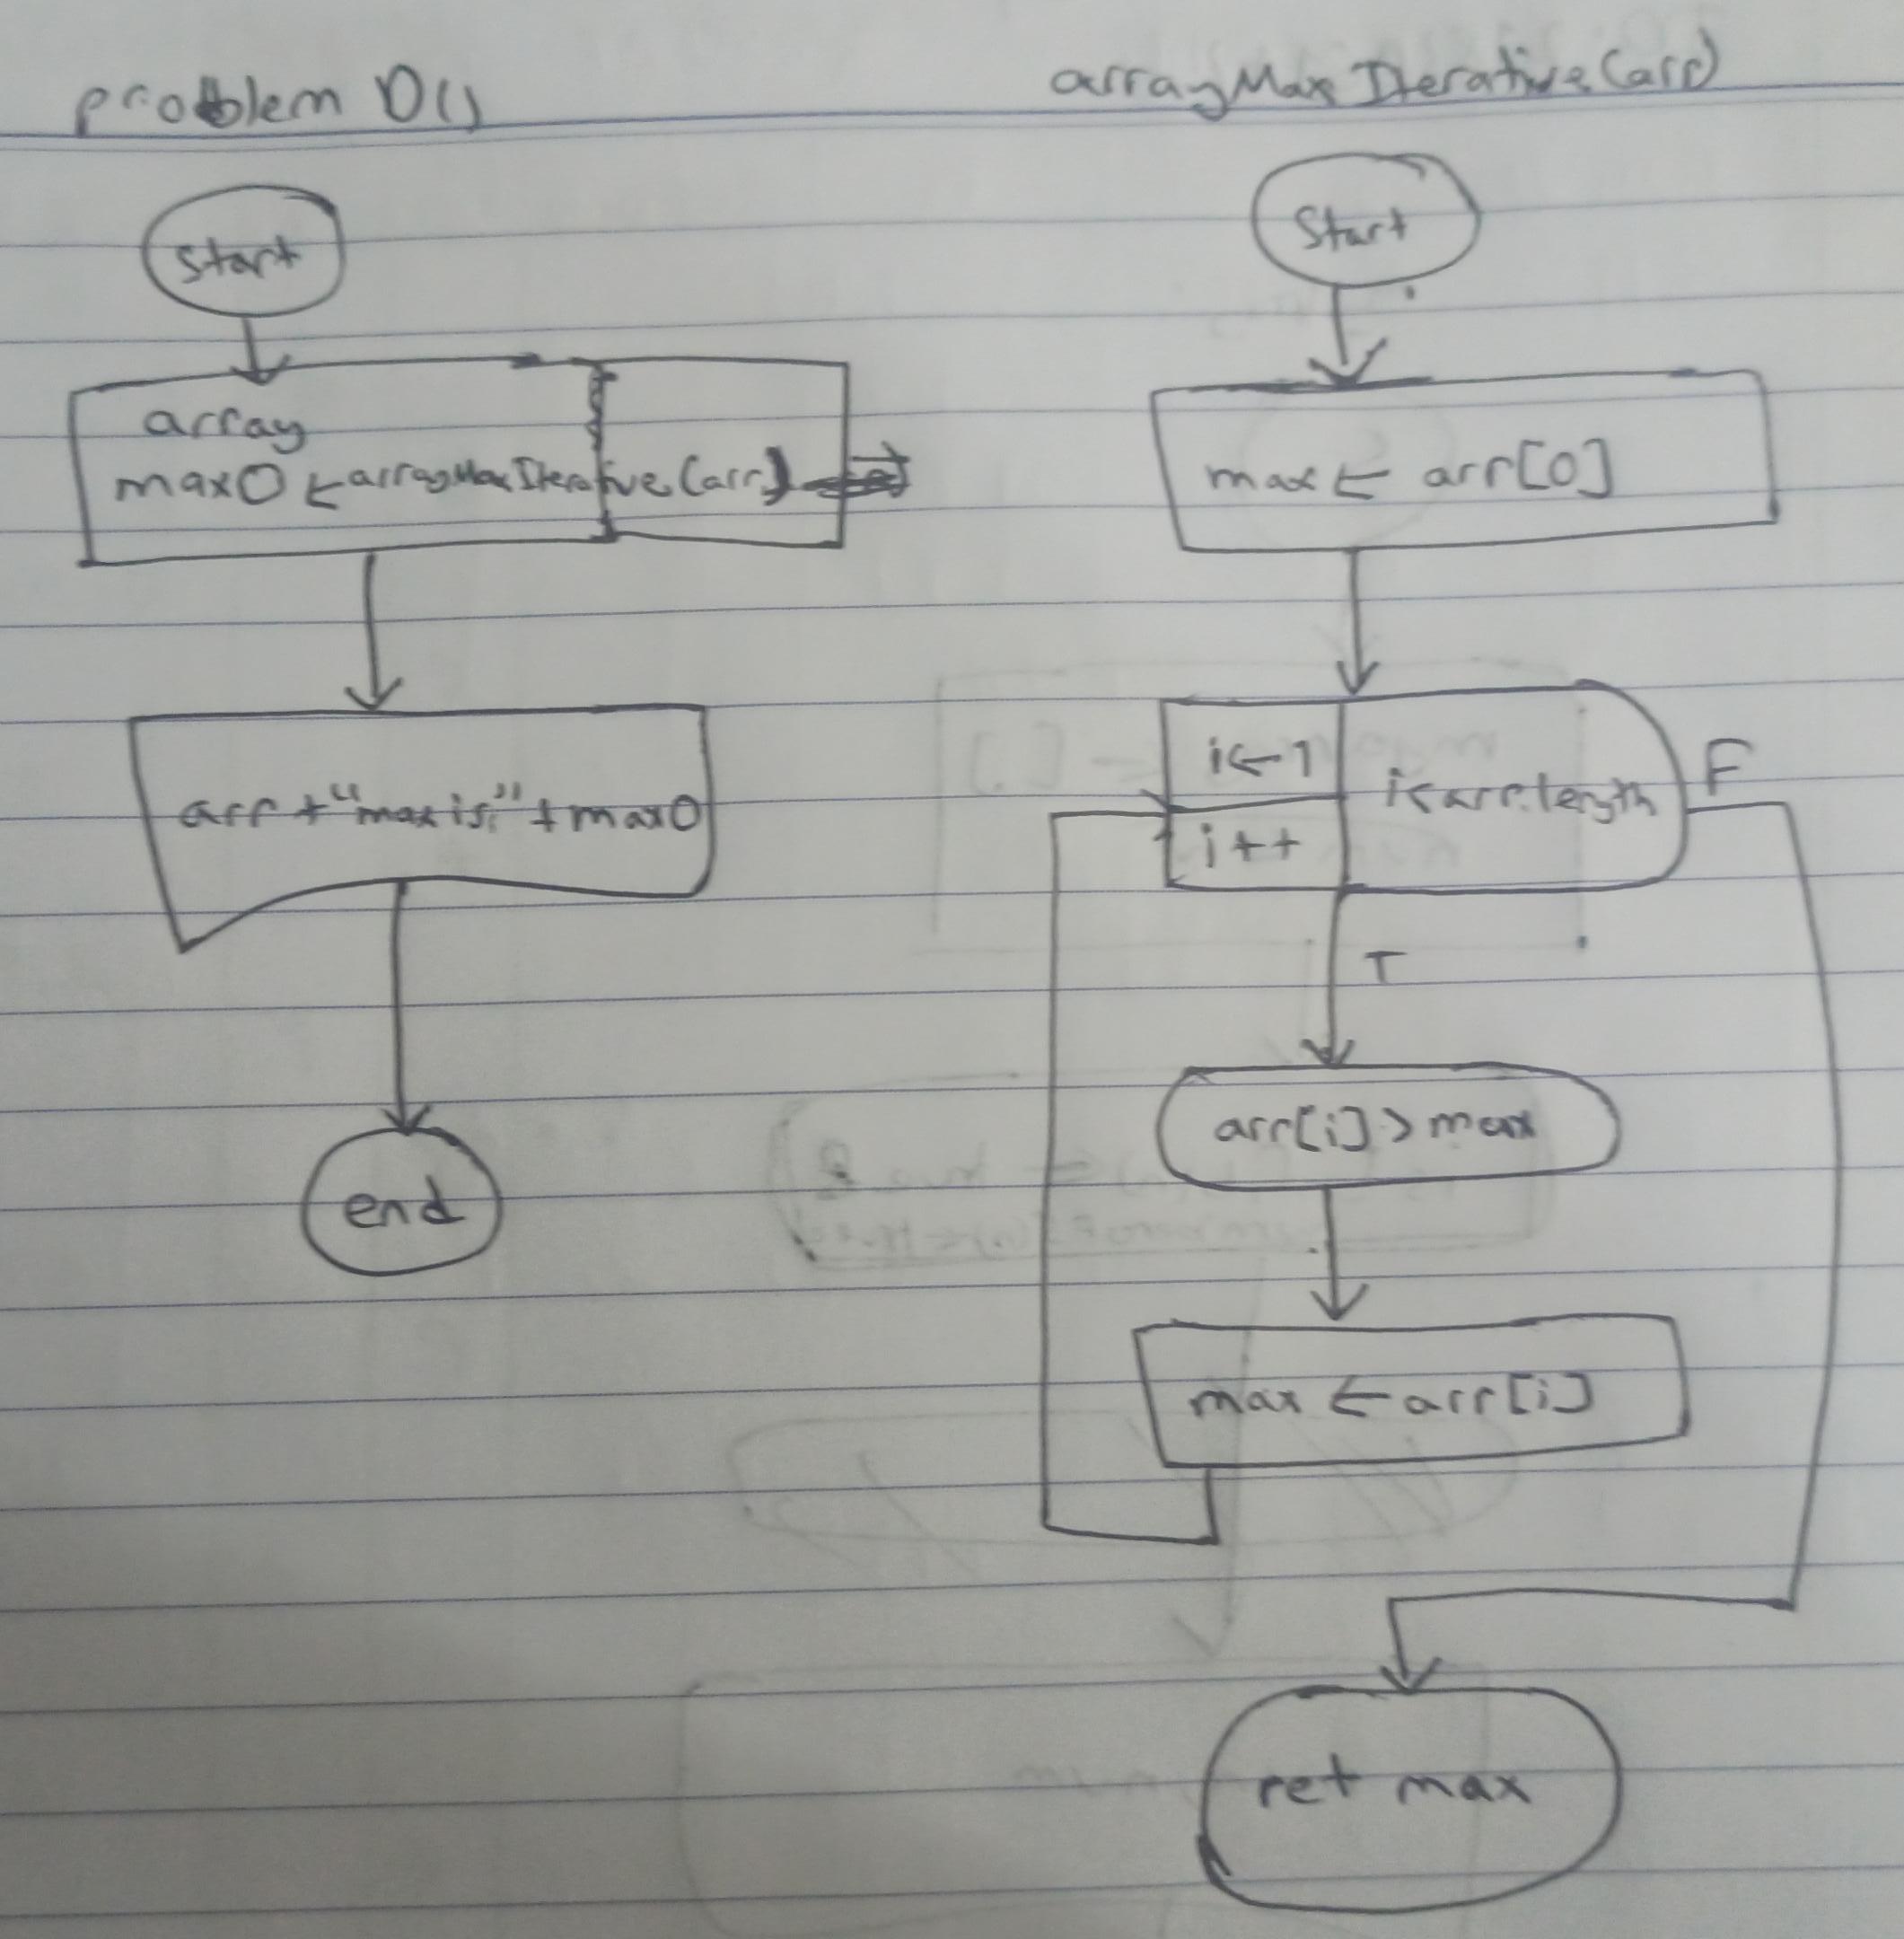 problem D()
start
array
maxO ← arrayMaxIterative(arr)
arr + "max is:" + maxO
end
arrayMaxIterative(arr)
Start
max ← arr[0]
i ← 1
i++
i < arr.length
F
T
arr[i] > max
max ← arr[i]
ret max